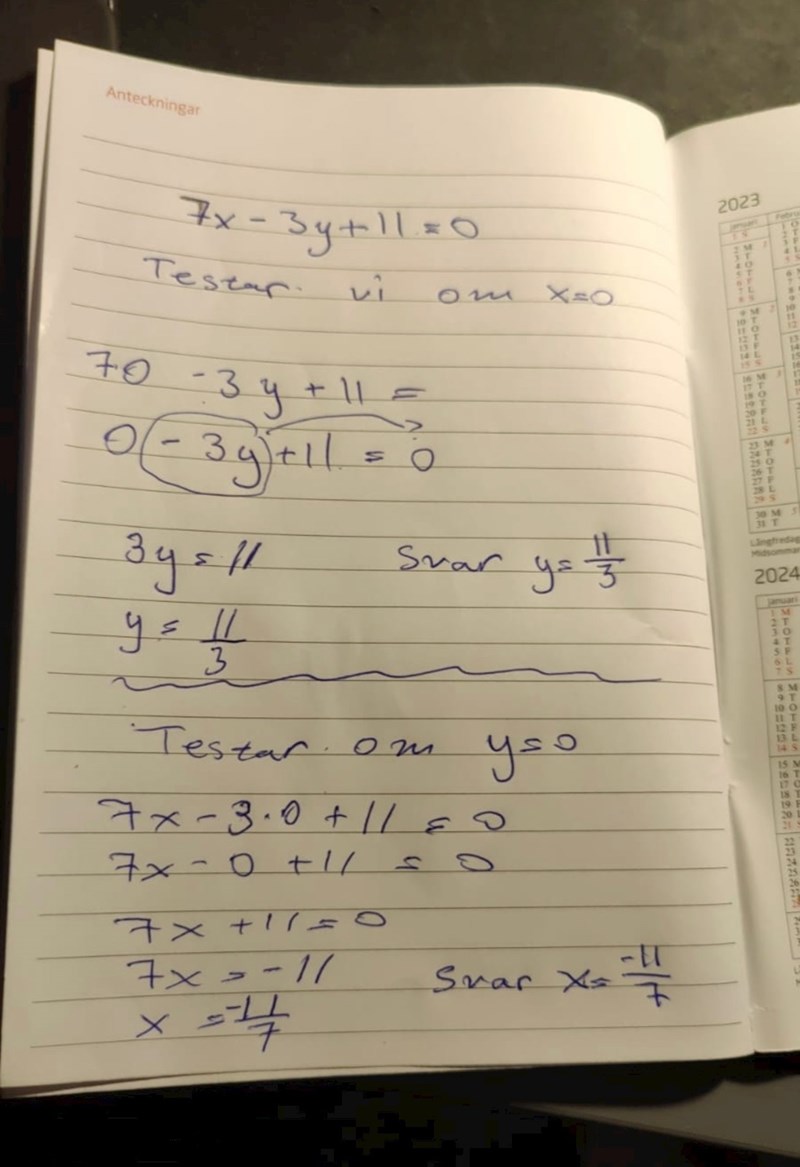 Anteckningar
7x - 3y + 11 = 0
Testar vi om x=0
70 - 3y + 11 =
0 - 3y + 11 = 0
3y = 11 Svar y = 11/3
y = 11/3
Testar om y=0
7x - 3·0 + 11 = 0
7x - 0 + 11 = 0
7x + 11 = 0
7x = -11 Svar x = -11/7
x = -11/7
2023
januari
2024
januari